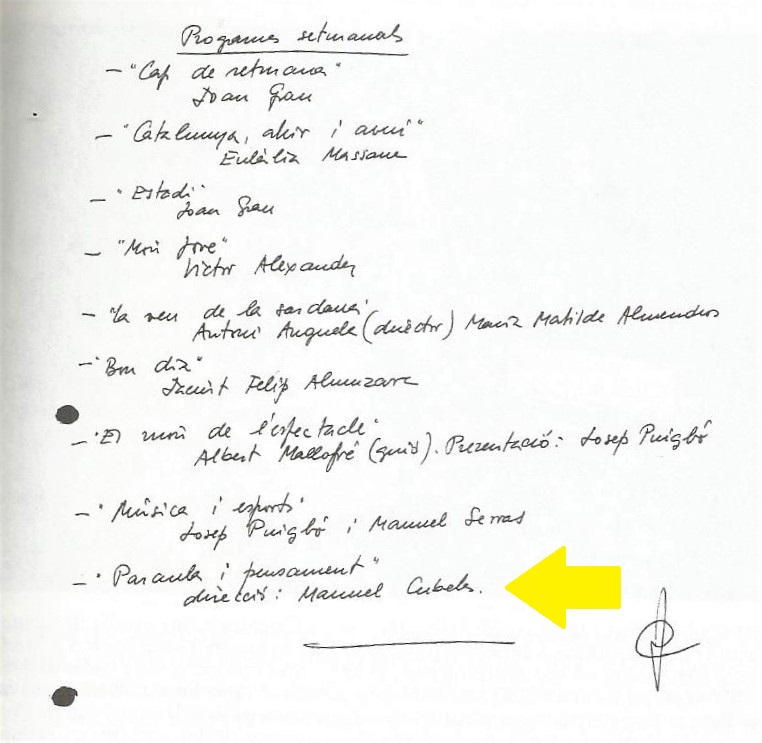 Programes setmanals
- "Cap de setmana"
Joan Grau
- "Catalunya, ahir i avui"
Eulàlia Massana
- "Estadi"
Joan Grau
- "Món Jove"
Victor Alexander
- "La veu de la sardana"
Antoni Anguela (director) Maria Matilde Almendros
- "Bon dia"
Jacint Felip Almuzara
- "El món de l'espectacle"
Albert Mallofré (guió). Presentació: Josep Puigbó
- "Música i esports"
Josep Puigbó i Manuel Serras
- "Paraula i pensament"
direcció: Manuel Cubeles.